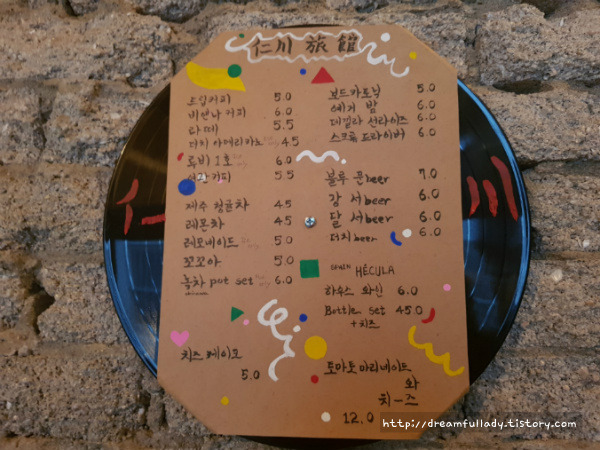 仁川 旅館
드립커피 5.0
비엔나 커피 6.0
라떼 5.5
더치 아메리카노 4.5
6.0
커피 5.5
제주 청귤차 4.5
레몬차 4.5
레모네이드 5.0
꼬꼬아 5.0
홍차 pot set 6.0
치즈 케이크
5.0
보드카토닉 5.0
예거 밤 6.0
데킬라 선라이즈 6.0
스크류 드라이버 6.0
블루 문 beer 7.0
강 서 beer 6.0
달 서 beer 6.0
더치 beer 6.0
SPAIN HÉCULA
하우스 와인 6.0
Bottle set 45.0
+치즈
토마토 마리네이드
와
치-즈
12.0
仁 川
http://dreamfullady.tistory.com